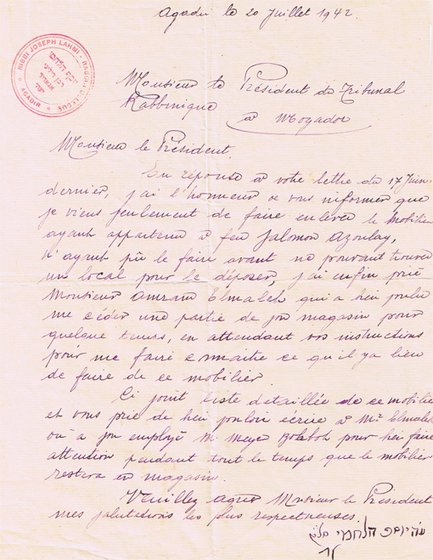 Agadir le 20 Juillet 1942
RABBI JOSEPH LAHMI
AGADIR
Monsieur le Président du Tribunal
Rabbinique
à Mogador
Monsieur le Président.
En réponse à votre lettre du 17 Juin
dernier, j'ai l'honneur de vous informer que
je viens seulement de faire enlever le mobilier
ayant appartenu à feu Salomon Azoulay,
n'ayant pû le faire avant ne pouvant trouver
un local pour le déposer, j'ai enfin prié
Monsieur Amram Elmaleh qui a bien voulu
me céder une partie de son magasin pour
quelque temps, en attendant vos instructions
pour me faire connaitre ce qu'il y a lieu
de faire de ce mobilier.
Ci joint liste détaillée de ce mobilier
et vous prie de bien vouloir écrire à Mr Elmaleh
ou à son employé M. pour bien faire
attention pendant tout le temps que le mobilier
restera en magasin.
Veuillez agréer Monsieur le Président
mes salutations les plus respectueuses.
יוסף הלחמי